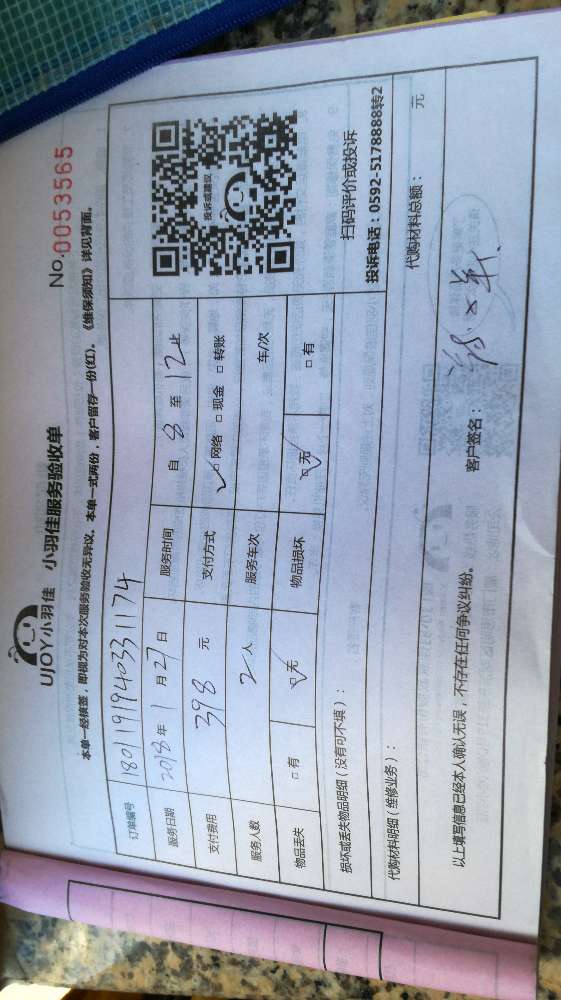 UJOY小羽佳 小羽佳服务验收单
No.0053565
本单一经核签,即视为对本次服务验收无异议,本单一式两份,客户留存一份(红)。《维保须知》详见背面。
订单编号 1801191940331174
服务日期 2018年1月27日 服务时间 自 8 至 12 止
支付费用 398 元 支付方式 ☑网络 □现金 □转账
服务人数 2人 服务车次 车/次
物品丢失 □有 ☑无 物品损坏 ☑无 □有
投诉或建议
扫码评价或投诉
投诉电话:0592-5178888转2
损坏或丢失物品明细(没有可不填):
代购材料明细(维修业务): 代购材料总额: 元
以上填写信息已经本人确认无误,不存在任何争议纠纷。 客户签名: